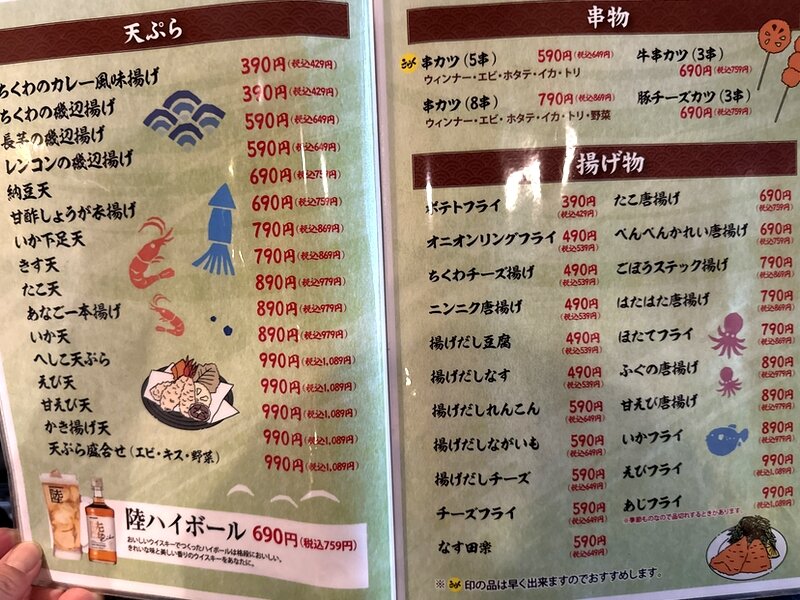 天ぷら
ちくわのカレー風味揚げ 390円(税込429円)
ちくわの磯辺揚げ 390円(税込429円)
長芋の磯辺揚げ 590円(税込649円)
レンコンの磯辺揚げ 590円(税込649円)
納豆天 690円(税込759円)
甘酢しょうが本揚げ 690円(税込759円)
いか下足天 790円(税込869円)
きす天 790円(税込869円)
たこ天 890円(税込979円)
あなご一本揚げ 890円(税込979円)
いか天 890円(税込979円)
へしこ天ぷら 990円(税込1,089円)
えび天 990円(税込1,089円)
甘えび天 990円(税込1,089円)
かき揚げ天 990円(税込1,089円)
天ぷら盛合せ(エビ・キス・野菜) 990円(税込1,089円)
陸
陸ハイボール 690円(税込759円)
おいしいウイスキーでつくったハイボールは格段においしい。
きれいな味と美しい香りのウイスキーをあなたに。
串物
串カツ(5串) 590円(税込649円)
ウィンナー・エビ・ホタテ・イカ・トリ
串カツ(8串) 790円(税込869円)
ウィンナー・エビ・ホタテ・イカ・トリ・野菜
牛串カツ(3串)
690円(税込759円)
豚チーズカツ(3串)
690円(税込759円)
揚げ物
ポテトフライ 390円(税込429円)
オニオンリングフライ 490円(税込539円)
ちくわチーズ揚げ 490円(税込539円)
ニンニク唐揚げ 490円(税込539円)
揚げだし豆腐 490円(税込539円)
揚げだしなす 490円(税込539円)
揚げだしれんこん 590円(税込649円)
揚げだしながいも 590円(税込649円)
揚げだしチーズ 590円(税込649円)
チーズフライ 590円(税込649円)
なす田楽 590円(税込649円)
たこ唐揚げ 690円(税込759円)
べんべんかれい唐揚げ 690円(税込759円)
ごぼうステック揚げ 790円(税込869円)
はたはた唐揚げ 790円(税込869円)
ほたてフライ 790円(税込869円)
ふぐの唐揚げ 890円(税込979円)
甘えび唐揚げ 890円(税込979円)
いかフライ 890円(税込979円)
えびフライ 990円(税込1,089円)
あじフライ 990円(税込1,089円)
※季節ものなので品切れするときがあります
※ 印の品は早く出来ますのでおすすめします。